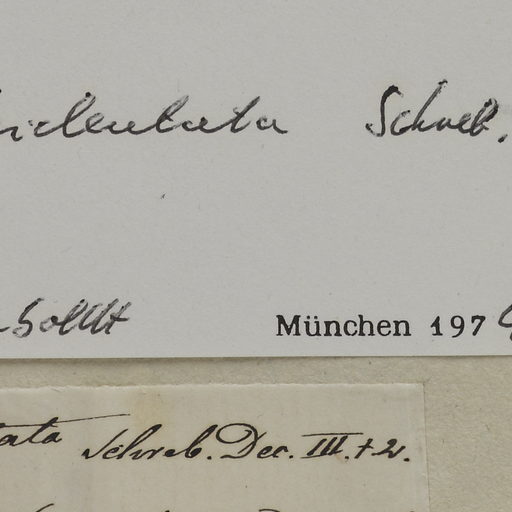 identata Schreb.
München 197
tata Schreb. Dec. III. t 2.